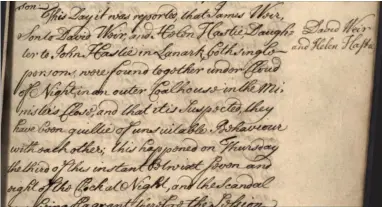 son
This Day it was reported, that James Weir,
Son to David Weir, and Helen Hastie Daugh
ter to John Hastie in Lanark both single
persons, were found together under Cloud
of Night, in an outer Coalhouse in the Mi
nisters Close, and that it is suspected they
have been guiltie of unsuitable Behaviour
with each other; this happened on Thursday
the third of this instant betwixt seven and
eight of the Clock at Night, and the scandal
being flagrant the Session
David Weir
and Helen Hastie